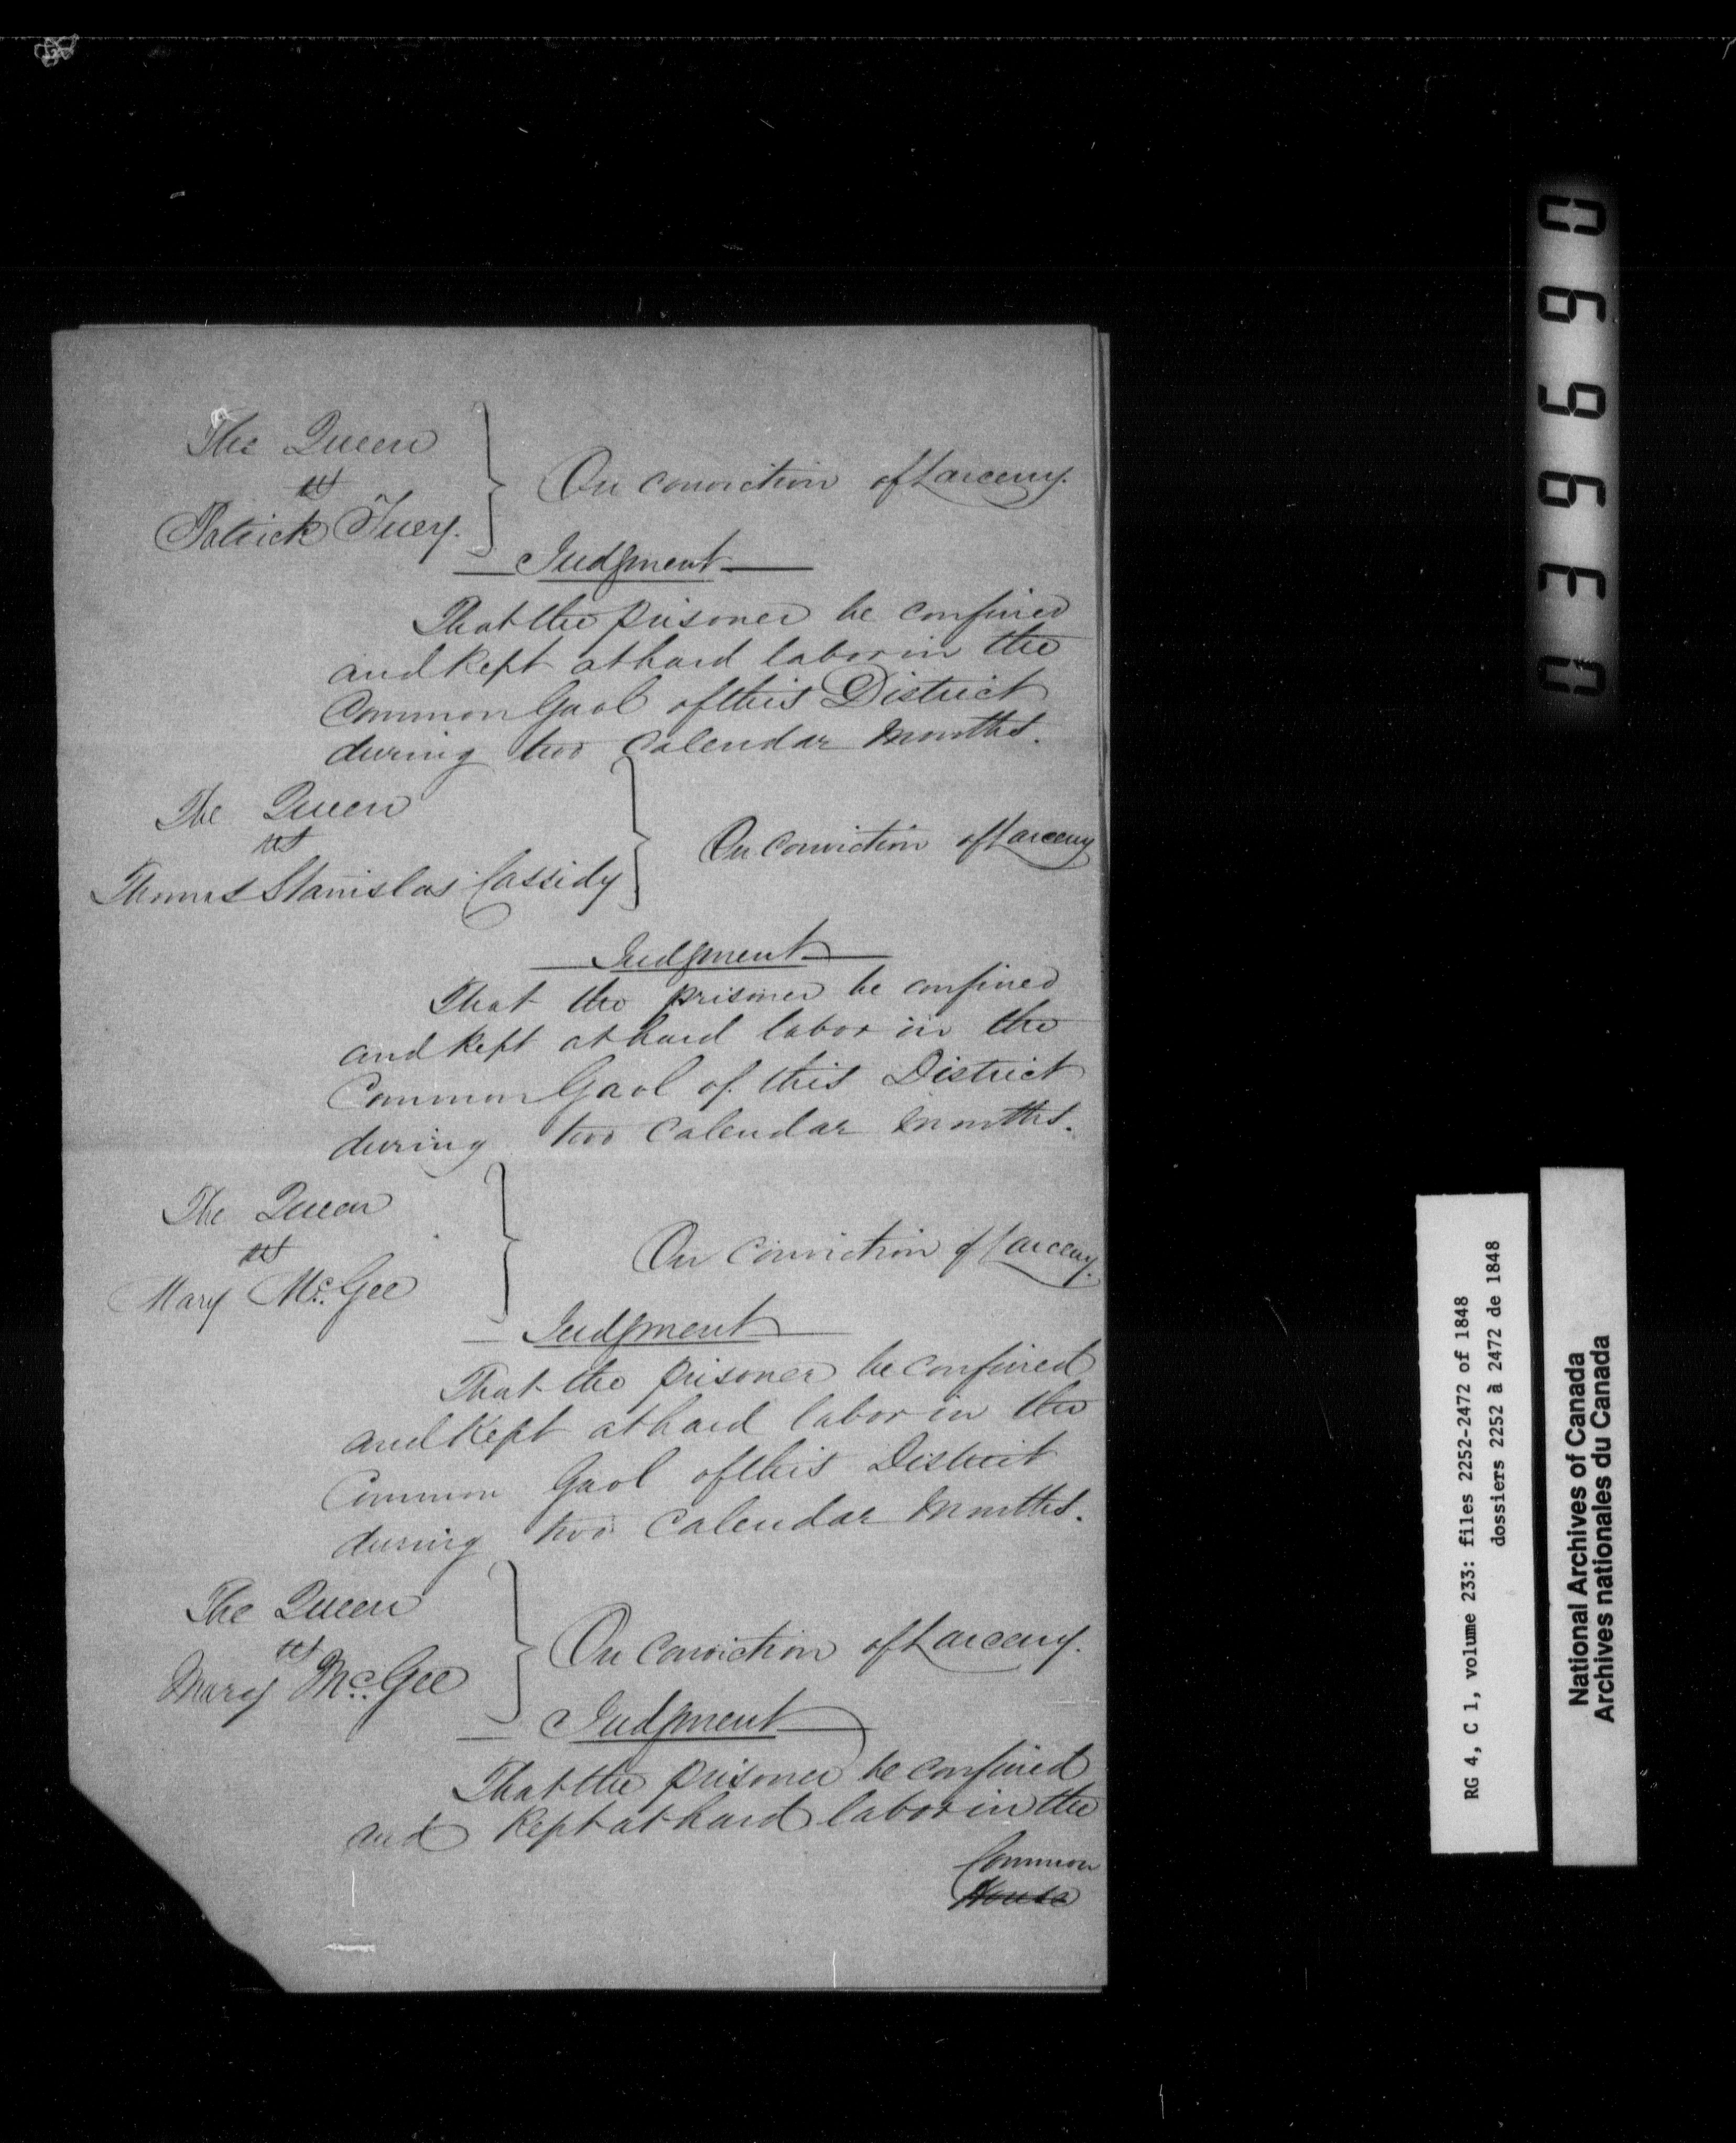 The Queen
vs
Patrick Fuery.
On conviction of Larceny.
Judgment
That the prisoner be confined
and kept at hard labor in the
Common Gaol of this District
during two Calendar Months.
The Queen
vs
Thomas Stanislas Cassidy
On conviction of Larceny
Judgment
That the prisoner be confined
and kept at hard labor in the
Common Gaol of this District
during two Calendar Months.
The Queen
vs
Mary McGee
On Conviction of Larceny.
Judgment
That the prisoner be confined
and kept at hard labor in the
Common Gaol of this District
during two Calendar Months.
The Queen
vs
Mary McGee
On Conviction of Larceny.
Judgment
That the prisoner be confined
and kept at hard labor in the
Common
House
039690
RG 4, C 1, volume 233: files 2252-2472 of 1848
dossiers 2252 à 2472 de 1848
National Archives of Canada
Archives nationales du Canada